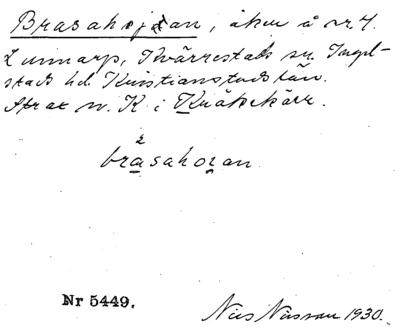 Brasahojan, åker å nr 4.
Lunnarp, Kvärrestads sn. Ingel-
stads hd. Kristianstads län.
Strax n. K. i Kråkekärr.
brasahoran
Nr 5449.
Nils Nilsson 1930.